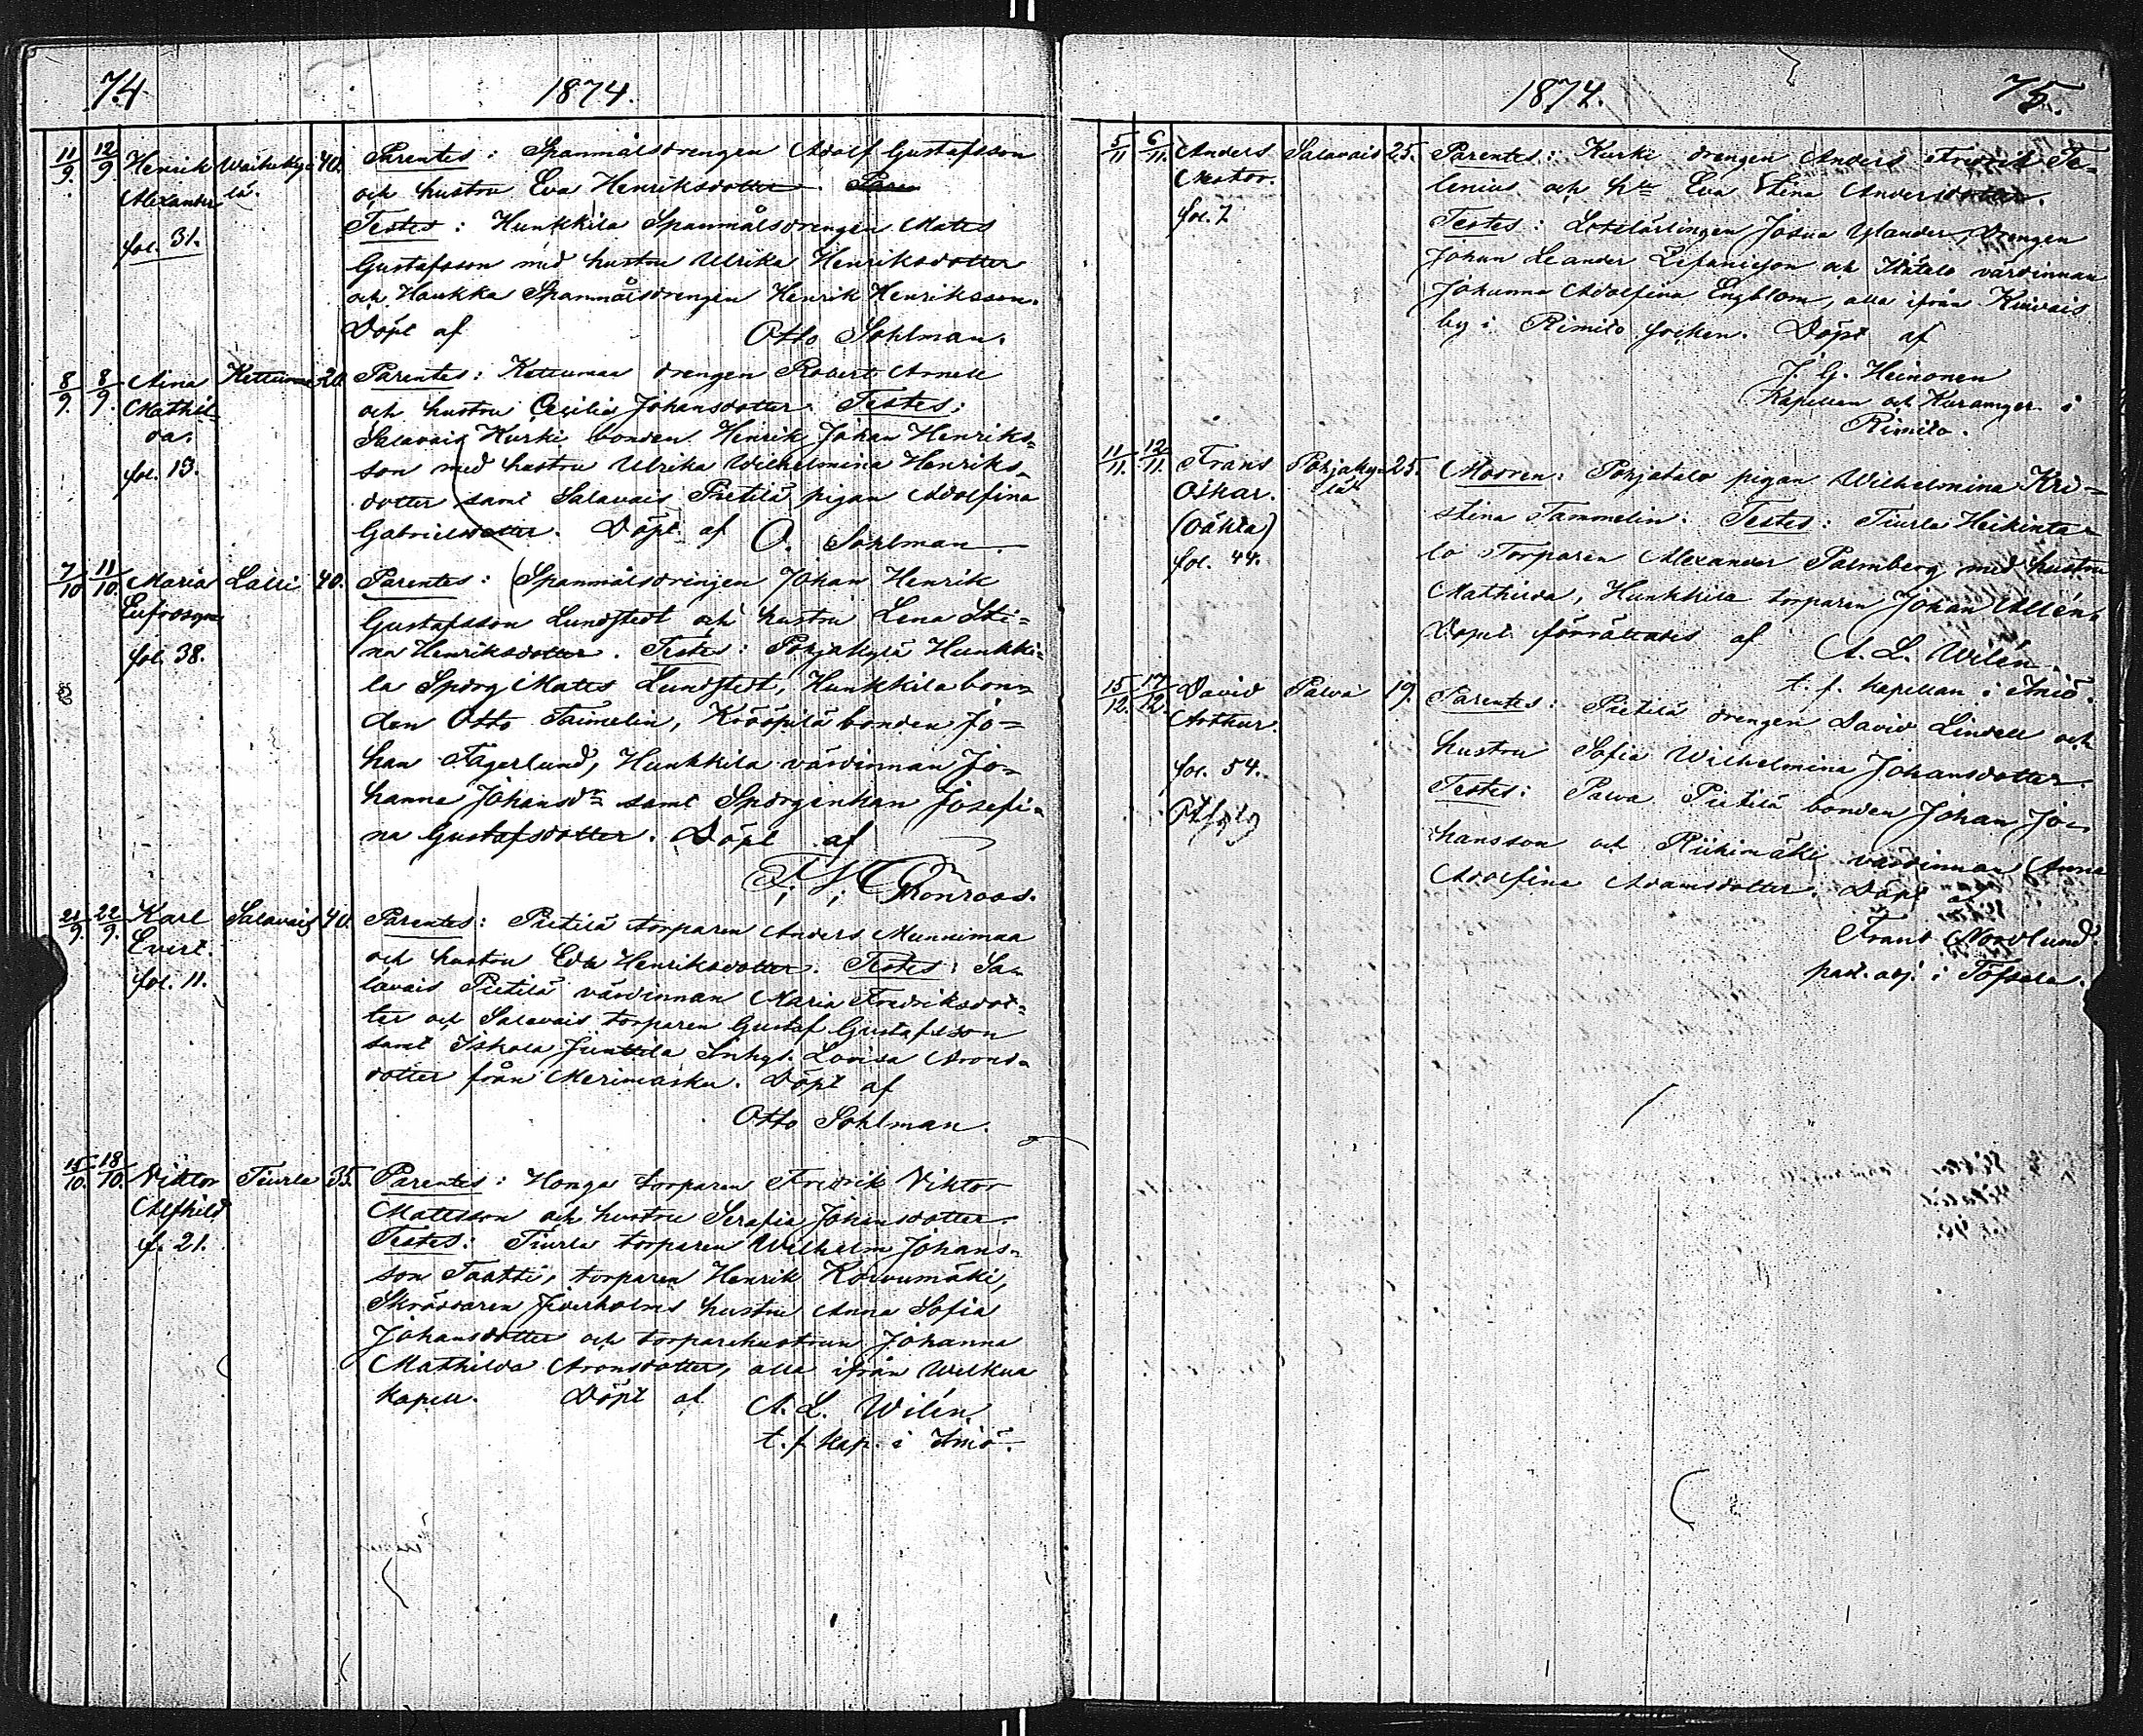 74
1874.
11/9. 12/9. Henrik Waihekyl 40. Parentes: Spanmålsdrengen Adolf Gustafsson
Alexander lä. och hustru Eva Henriksdotter.
fol. 31. Testes: Hunkkila Spanmålsdrengen Mats
Gustafsson med hustru Ulrika Henriksdotter
och Haukka Spanmålsdrengen Henrik Henriksson.
Döpt af Otto Sohlman.
8/9. 8/9. Aina Kettumaa 20. Parentes: Kettumaa drengen Robert Arnell
Mathil- och hustru Cecilia Johansdotter. Testes:
da. Salavais Kurki bonden Henrik Johan Henriks-
fol. 13. son med hustru Ulrika Wilhelmina Henriks-
dotter samt Salavais Pietilä pigan Adolfina
Gabrielsdotter. Döpt af O. Sohlman.
7/10 11/10. Maria Lailli 40. Parentes: Spanmålsdrengen Johan Henrik
Eufrosyne Gustafsson Lundstedt och hustru Lena Sti-
fol. 38. na Henriksdotter. Testes: Pohjakylä Hunkki-
la Spdrg Mats Lundstedt, Hunkkila bon-
den Otto Taimelin, Krööpilä bonden Jo-
han Fagerlund, Hunkkila värdinnan Jo-
hanna Johansdr samt Spdrgenkan Josefi-
na Gustafsdotter. Döpt af
F. W. Cronroos.
21/9. 22/9. Karl Salavais 40. Parentes: Pietilä torparen Anders Munnimaa
Evert. och hustru Eva Henriksdotter. Testes: Sa-
fol. 11. lavais Pietilä värdinnan Maria Fredriksdot-
ter och Salavais torparen Gustaf Gustafsson
samt Iskala Junttila Inhys. Lovisa Arons-
dotter från Merimasku. Döpt af
Otto Sohlman.
15/10. 18/10. Viktor Tiurla 35. Parentes: Honga torparen Fredrik Viktor
Alfhild Matsson och hustru Serafia Johansdotter.
f. 21. Testes: Tiurla torparen Wilhelm Johans-
son Taatti, torparen Henrik Koivumäki,
Skräddaren Fiverholms hustru Anna Sofia
Johansdotter och torparehustrun Johanna
Mathilda Aronsdotter, alla ifrån Welkua
Kapell. Döpt af A. L. Wilén.
t. f. kap. i Iniö.
1874. 75.
5/11 6/11. Anders Salavais 25. Parentes: Kurki drengen Anders Fredrik Te-
Nestor. lenius och hu Eva Stina Andersdotter.
fol. 7 Testes: Lotslärlingen Josua Ylander, Drengen
Johan Leander Zefaniesson och Itätalo värdinnan
Johanna Adolfina Engblom, alla ifrån Kuivais
by i Rimito socken. Döpt af
J. G. Heinonen
Kapellan och i
Rimito.
11/11. 12/11. Frans Pohjaky- 25. Modren: Pohjatalo pigan Wilhelmina Kri-
Oskar. lä stina Tammelin. Testes: Tiurla Heikinta-
(Oäkta) lo Torparen Alexander Palmberg med hustru
fol. 44. Mathilda, Hunkkila torparen Johan Allén.
Dopet förrättades af A. L. Wilén.
t. f. kapellan i Iniö.
15/12. 17/12. David Palva 19. Parentes: Pietilä drengen David Lindell och
Arthur. hustru Sofia Wilhelmina Johansdotter.
fol. 54. Testes: Palva Pietilä bonden Johan Jo-
hansson och Riihimäki värdinnan Anna
Adolfina Adamsdotter. Döpt af
Frans Nordlund.
past. adj. i Töfsala.